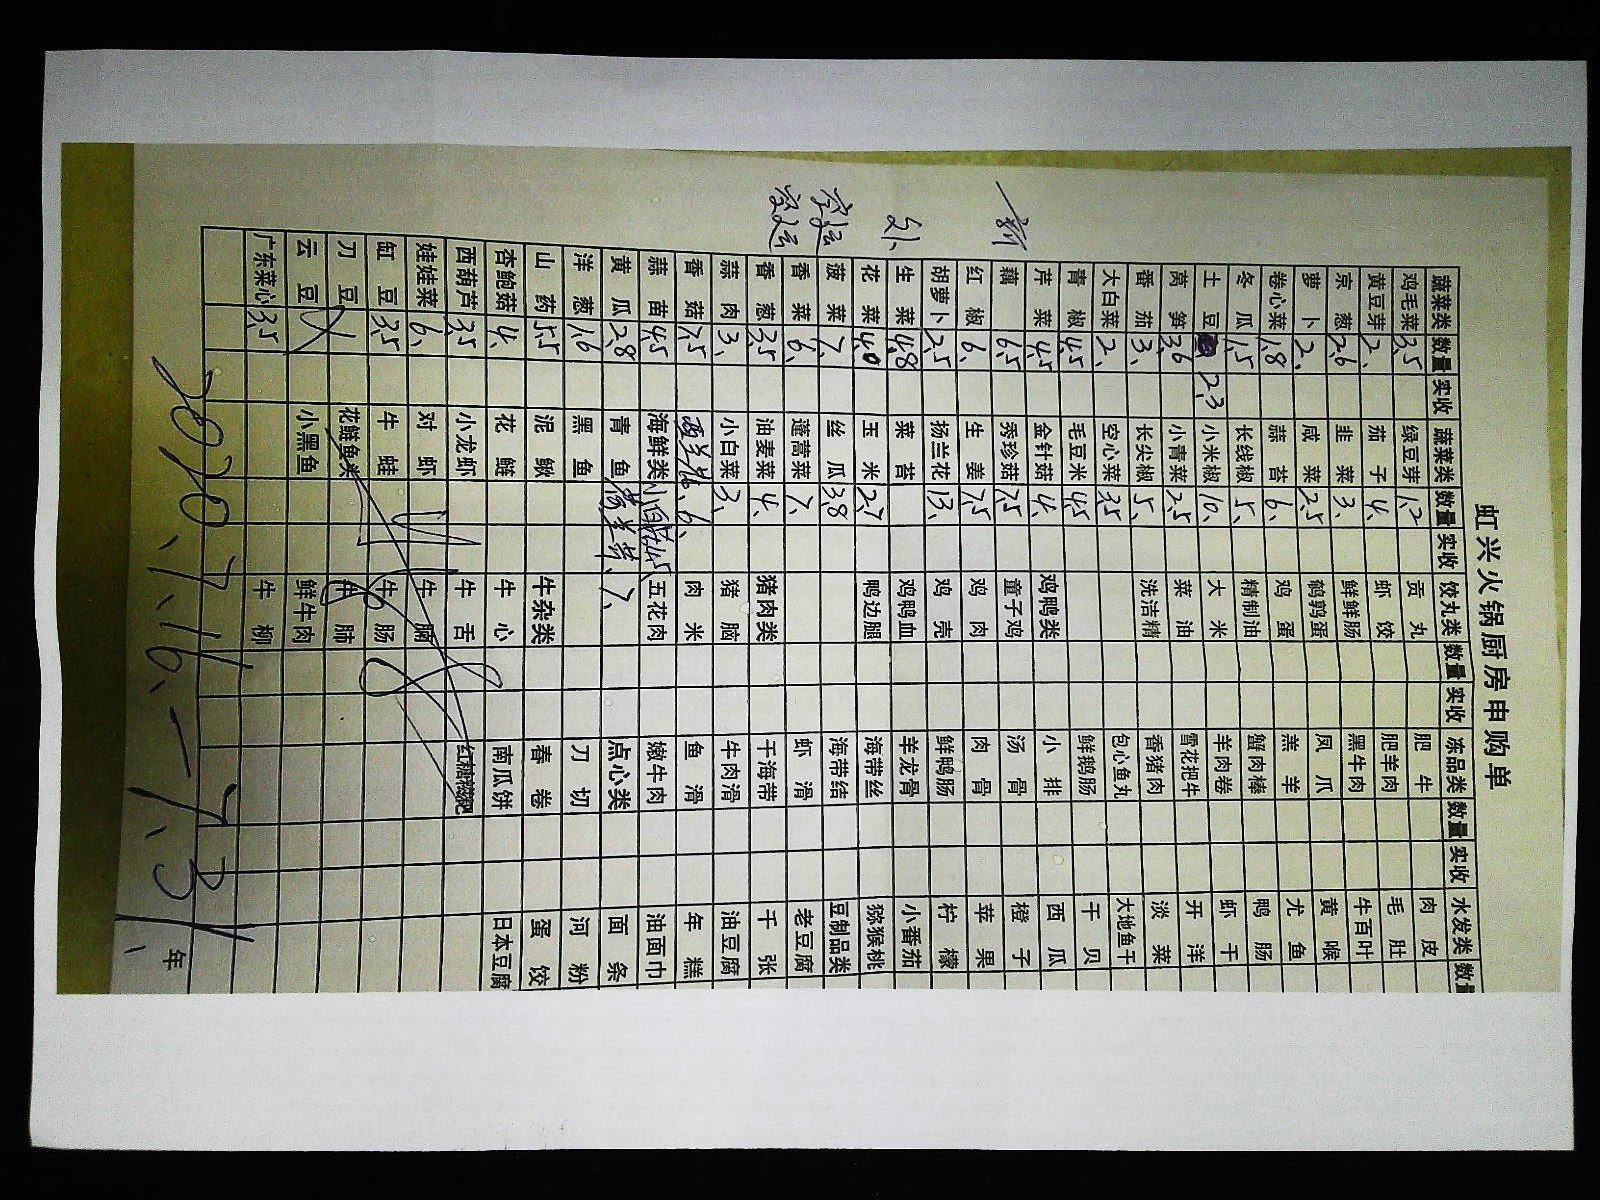 虹兴火锅厨房申购单
蔬菜类 数量 实收 蔬菜类 数量 实收 饺丸类 数量 实收 冻品类 数量 实收 水发类 数量
鸡毛菜 3.5 绿豆芽 1.2 贡丸 肥牛 肉皮
黄豆芽 2、 茄子 4、 虾饺 肥羊肉 毛肚
京葱 2.6 韭菜 3、 鲜鲜肠 黑牛肉 牛百叶
萝卜 2、 咸菜 2.5 鹌鹑蛋 凤爪 黄喉
卷心菜 1.8 蒜苔 6、 鸡蛋 羔羊 尤鱼
冬瓜 1.5 长线椒 5、 精制油 蟹肉棒 鸭肠
土豆 2.3 小米椒 10、 大米 羊肉卷 虾干
莴笋 3.6 小青菜 2.5 菜油 雪花把牛 开洋
番茄 3、 长尖椒 5、 洗洁精 香猪肉 淡菜
大白菜 2、 空心菜 3.5 包心鱼丸 大地鱼干
青椒 4.5 毛豆米 4.5 鲜鹅肠 干贝
芹菜 4.5 金针菇 4、 鸡鸭类 小排 西瓜
藕 6.5 秀珍菇 7.5 童子鸡 汤骨 橙子
红椒 6、 生姜 7.5 鸡肉 肉骨 苹果
胡萝卜 2.5 杨兰花 13、 鸡壳 鲜鸭肠 柠檬
生菜 4.8 菜苔 鸡鸭血 羊龙骨 小番茄
花菜 4.0 玉米 2.7 鸭边腿 海带丝 猕猴桃
菠菜 7、 丝瓜 3.8 海带结 豆制品类
香菜 6、 蓬蒿菜 7、 虾滑 老豆腐
香葱 3.5 油麦菜 4、 猪肉类 干海带 千张
蒜肉 3、 小白菜 3、 猪脑 牛肉滑 油豆腐
香菇 7.5 西兰花、6、 肉米 鱼滑 年糕
蒜苗 4.5 海鲜类 小白菇4.5 五花肉 嫩牛肉 油面巾
黄瓜 2.8 青鱼 7、 点心类 面条
洋葱 1.6 黑鱼 刀切 河粉
山药 5.5 泥鳅 牛杂类 春卷 蛋饺
杏鲍菇 4、 花鲢 牛心 南瓜饼 日本豆腐
西葫芦 3.5 小龙虾 牛舌 红糖糍粑
娃娃菜 6、 对虾 牛腩
缸豆 3.5 牛蛙 牛肠
刀豆 花鲢鱼类 牛肺
云豆 小黑鱼 鲜牛肉
广东菜心 3.5 牛柳
年